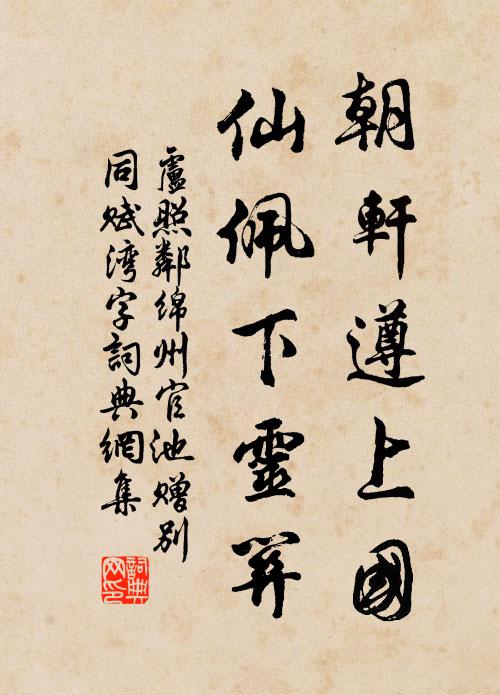 朝軒遵上國
仙佩下靈關
盧照鄰綿州官池贈別
同賦湾字詞典網集
詞典网印